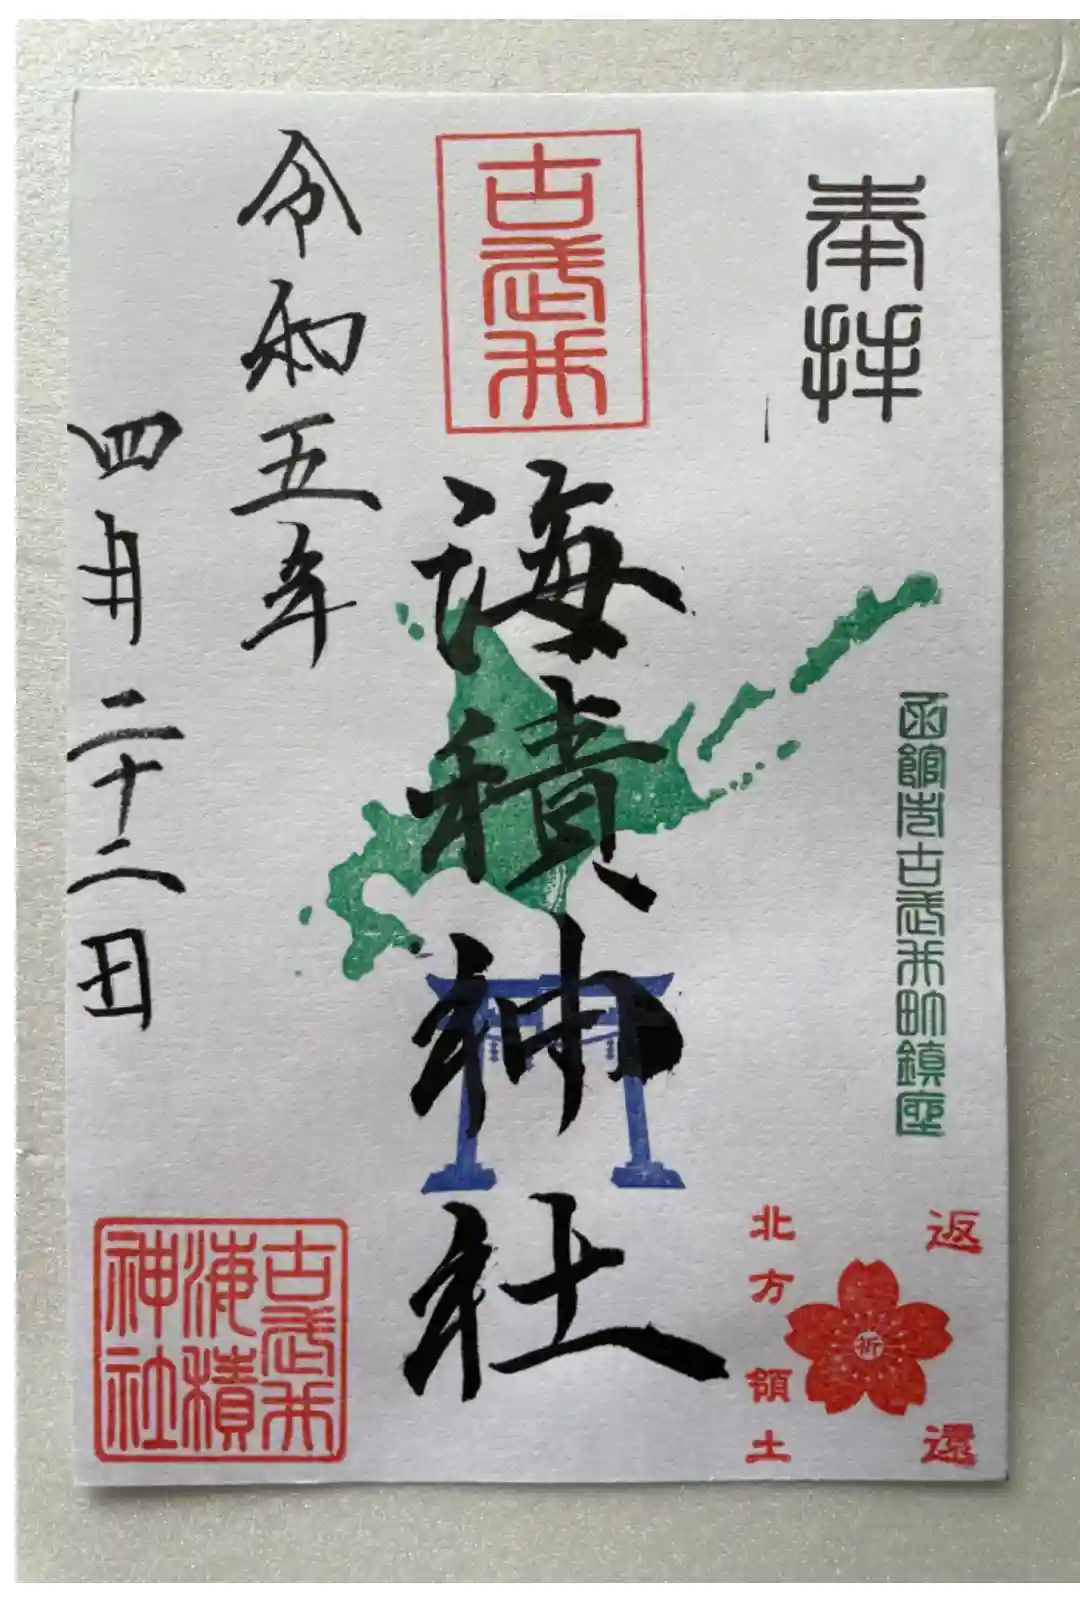 奉拝
函館市古武井町鎮座
北方領土
返還
祈
古武井
海積神社
令和五年
四月二十二日
古武井
海積
神社